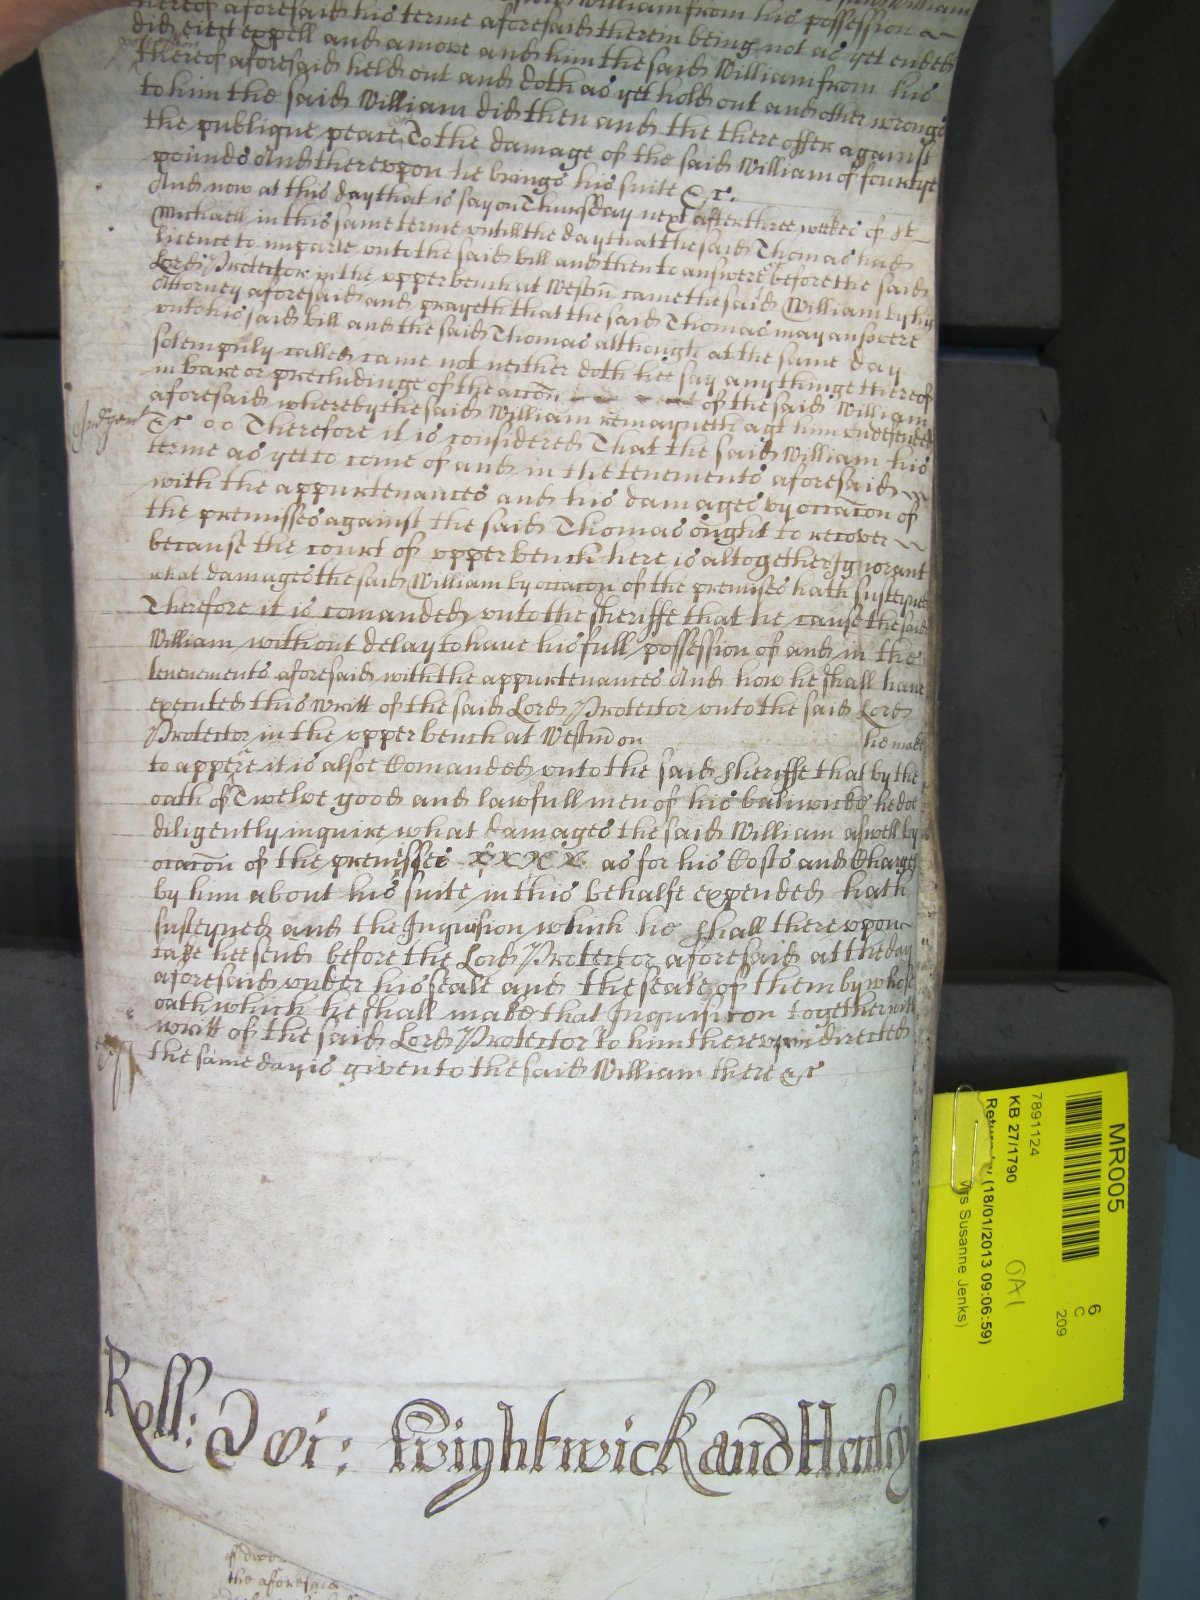 William from his possession
thereof aforesaid his terme aforesaid therein being not as yet ended
did eiect expell and amove and him the said William from his
possession
thereof aforesaid held out and doth as yet hold out and other wrongs
to him the said William did then and the there offer against
the publique peace To the damage of the said William of fourtye
pounds And therevpon he brings his suite &c.
And now at this day that is say on Thursday next after three weekes of St
Michaell in this same terme vntill the day that the said Thomas had
licence to imparle vnto the said bill and then to answere before the said
Lord Protector in the vpper bench at Westm came the said William by his
Attorney aforesaid and prayeth that the said Thomas may answere
vnto his said bill and the said Thomas although at the same day
solempnly called came not neither doth hee say any thinge thereof
in barr or precludinge of the accon of the said William
aforesaid whereby the said William remayneth agt him vndefended
Judgent
&c oo Therefore it is considered That the said William his
terme as yet to come of and in the tenements aforesaid
with the appurtenances and his damages by occacon of
the premisses against the said Thomas ought to recover
because the court of vpper bench here is altogether Ignorant
what damages the said William by occacon of the premises hath susteyned
Therefore it is comanded vnto the sheriffe that he cause the said
William without delay to have his full possession of and in the
tenements aforesaid with the appurtenances And how he shall have
executed this writt of the said Lord Protector vnto the said Lord
Protector in the vpper bench at Westm on he make
to appere it is alsoe Comanded vnto the said sheriffe that by the
oath of Twelve good and lawfull men of his baliwicke he doe
diligently inquire what damages the said William aswell by
occacon of the premisses as for his Costs and Charges
by him about his suite in this behalfe expended hath
susteyned and the Inquisicon which he shall therevpon
take hee send before the Lord Protector aforesaid at the day
aforesaid vnder his seale and the seales of them by whose
oath which he shall make that Inquisicon together with
writt of the said Lord Protector to him therevpon directed
the same day is given to the said William there &c
Roll: Wightwick and Henley
the aforesaid
MR005
7891124
KB 27/1790
Return by (18/01/2013 09:06:59)
Mrs Susanne Jenks)
6
C
209